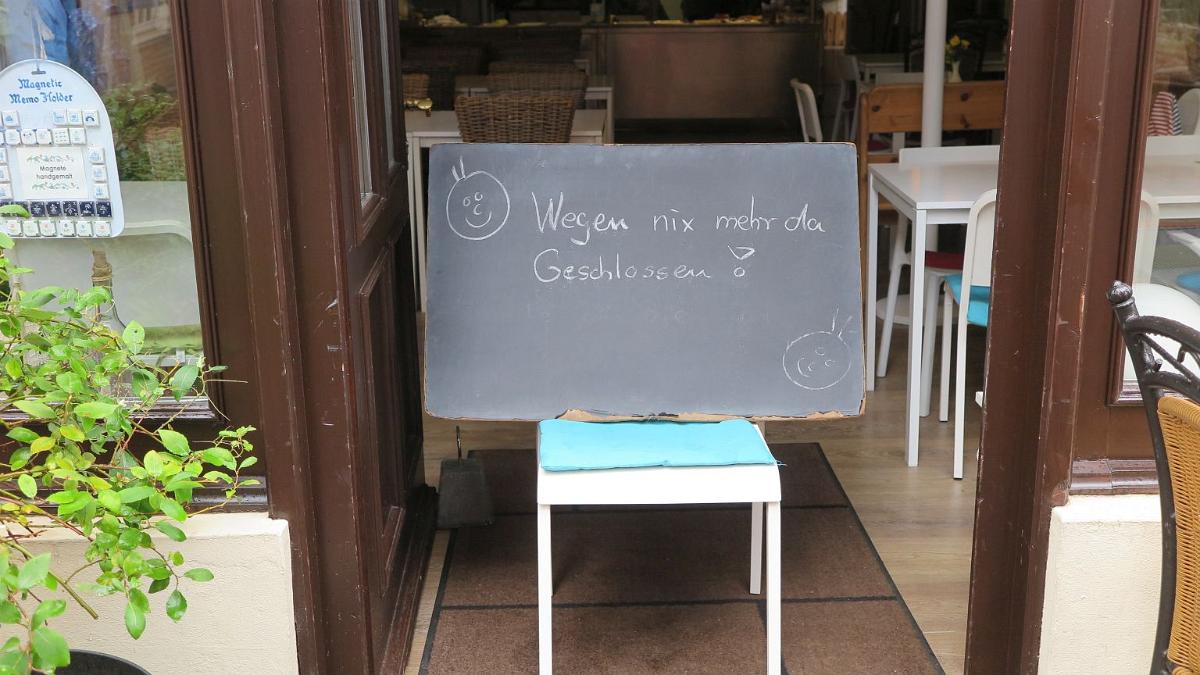 Magnetic
Memo Holder
Magnete
handgemalt
Wegen nix mehr da
Geschlossen !